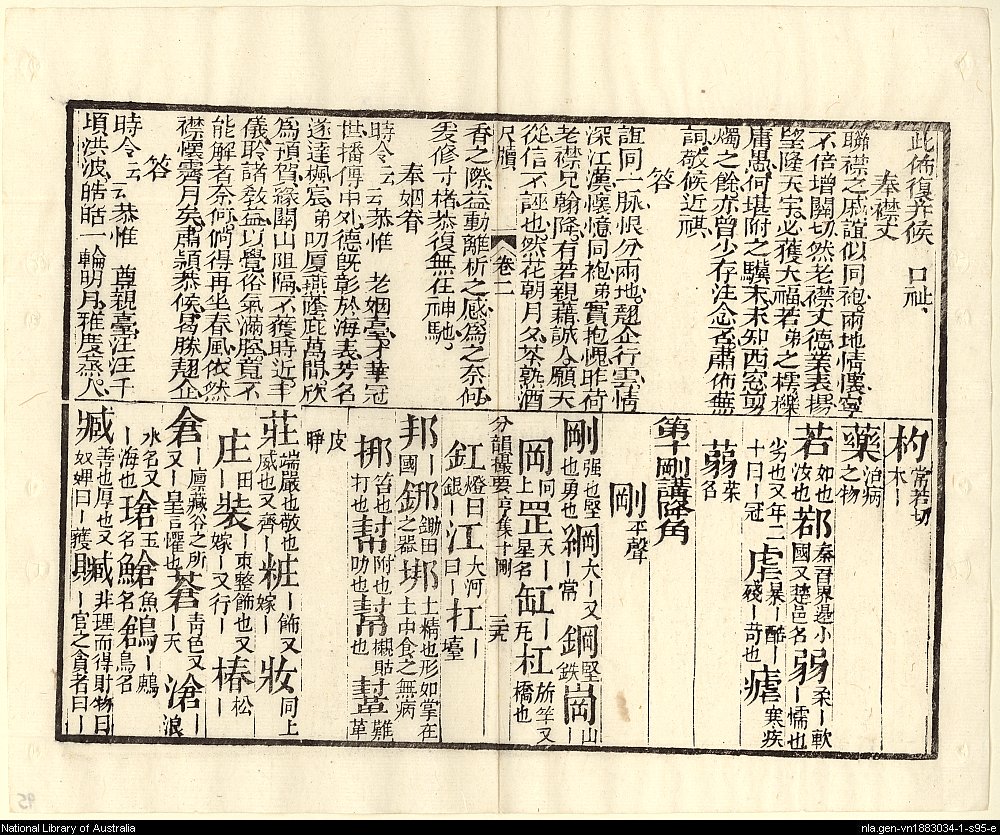 此佈復幷候　口祉
奉襟丈
聯襟之戚誼似同袍兩地情懷寧
不倍增關切然老襟丈德業表揚
堅隆天宝必獲大福若弟之樗櫟
庸愚何堪附之驥末未知西窓剪
燭之餘亦曾少存注念否肅佈蕪
詞敬候近祺
答
誼同一脈恨分兩地翹企行雲情
深江漢懷憶同袍弟實抱愧昨荷
老襟兄翰降有若親藉誠人願天
從信不誣也然花朝月夕茶熟酒
尺牘　卷二
香之際益動離析之感爲之奈何
爰修寸楮恭復無任神馳
奉姻眷
時令云云恭惟　老姻臺才華冠
世播傳中外德旣彰於海表芳名
遂達楓宸弟叨厦燕蔭庇萬間欣
爲預賀緣關山阻隔不獲時近丰
儀聆諸教益以覺俗氣滿腔竟不
能解者奈何倘得再坐春風依然
襟懷霽月矣肅穎恭候曷勝翹企
答
時令云云恭惟　尊親臺汪汪千
頃洪波皓皓一輪明月雅度蒸人
杓常若切木ー
藥治病之物
若如也汝也鄀秦百界邊小國又楚邑名弱柔ー軟ー懦也
劣也又年二十曰ー冠虐ー暴ー酷ー殘ー苛也瘧寒疾
蒻菜名
第十剛講降角
剛平聲
剛强也堅也勇也綱大ー又ー常鋼堅鉄崗ー山
岡何上罡天ー星名缸ー瓦杠旂竿又橋也
分韻撮要　亨集十剛　三九
釭燈曰銀ー江大河曰ー扛ー擡
邦ー國鎯鋤田之器垹土精也形如掌在土中食之無病
梆笞也打也幇ー附也ー叻也幫襯貼ー也𩍗難皮ー革
睜
莊端嚴也敬也威也又齊ー粧ー飾又嫁ー妝同上
庄田ー裝ー束整飾也又嫁ー又行ー樁松ー
倉ー廪藏谷之所又ー皇言懼也蒼青色又ー天滄ー浪
水名又ー海也瑲玉名鱠魚名鶬ー鴰鳥名
臧善也厚也又奴婢曰ー獲贓非理而得財物曰ー官之貪者曰ー
National Library of Australia
nla.gen-vn1883034-1-s95-e